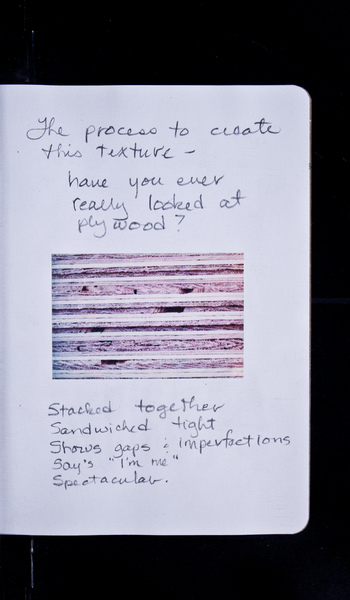 The process to create
this texture -
have you ever
really looked at
plywood?
Stacked together
Sandwiched tight
Shows gaps & imperfections
Say's "I'm me"
Spectacular.